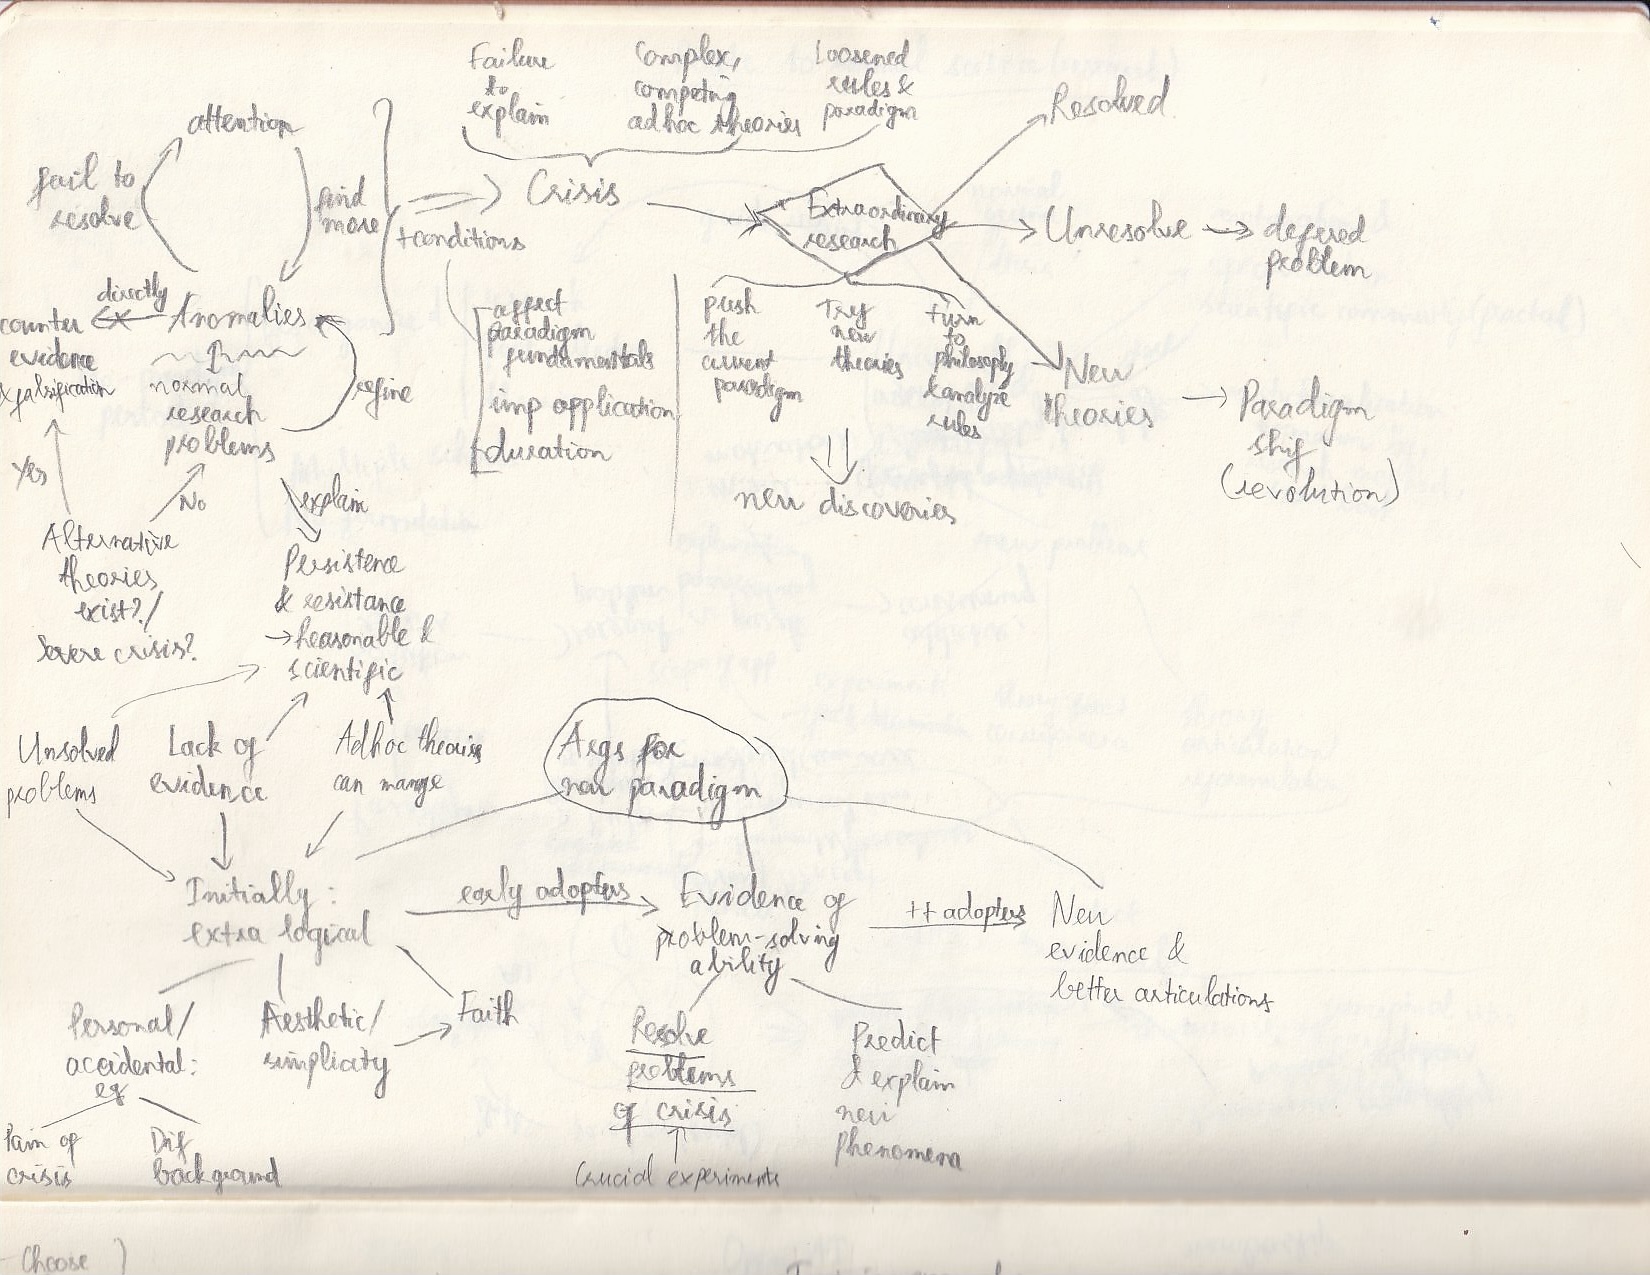 Failure
to
explain
Complex,
competing
adhoc theories
Loosened
rules &
paradigm
Resolved
attention
fail to
resolve
find
more
Crisis
+conditions
Extraordinary
research
Unresolve
defered
problem
directly
counter
evidence
& falsification
Anomalies
normal
research
problems
refine
affect
paradigm
fundamentals
imp application
duration
push
the
current
paradigm
Try
new
theories
turn
to
philosophy
& analyze
rules
New
theories
Paradigm
shif
(revolution)
new discoveries
Yes
No
explain
Alternative
theories
exist?/
Severe crisis?
Persistence
& resistance
→ Reasonable &
scientific
Unsolved
problems
Lack of
evidence
Adhoc theories
can mange
Args for
new paradigm
Initially:
extra logical
early adopters
Evidence of
problem-solving
ability
++ adopters
New
evidence &
better articulations
Personal/
accidental:
eg
Aesthetic/
simplicity
Faith
Resolve
problems
of crisis
Predict
& explain
new
phenomena
Pain of
crisis
Dif
background
Crucial experiments
- Choose